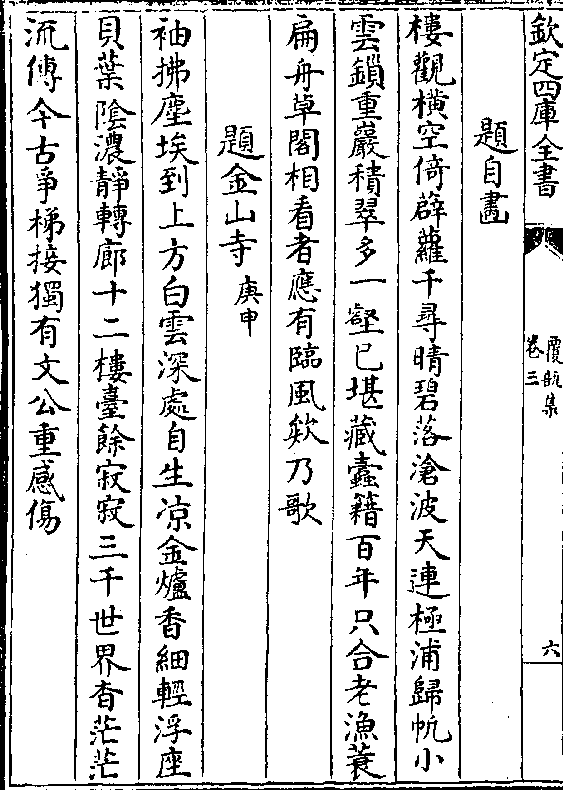 欽定四庫全書
覆瓿集
卷三
六
題自畫
樓觀橫空倚薜蘿千尋晴碧落滄波天連極浦歸帆小
雲鎖重巖積翠多一壑已堪藏蠹籍百年只合老漁蓑
扁舟草閣相看者應有臨風欸乃歌
題金山寺 庚申
袖拂塵埃到上方白雲深處自生凉金爐香細輕浮座
貝葉陰濃靜轉廊十二樓臺餘寂寂三千世界杳茫茫
流傳今古爭梯接獨有文公重感傷